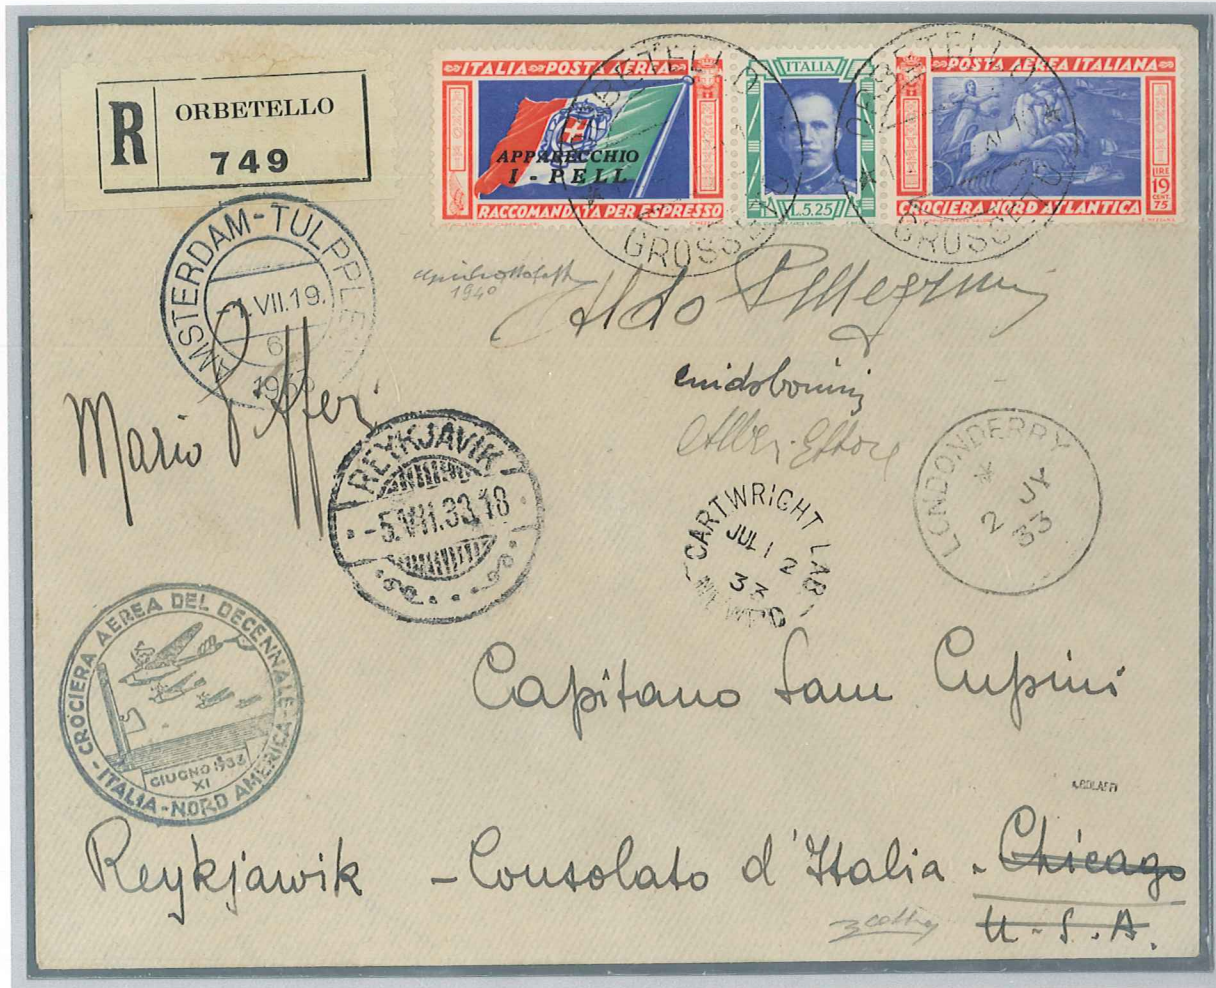 R ORBETELLO
749
ITALIA POSTA AEREA
APPARECCHIO
I - PELL
RACCOMANDATA PER ESPRESSO
ITALIA
L. 5.25
POSTA AEREA ITALIANA
LIRE
19
CENT.
75
CROCIERA NORD ATLANTICA
ORBETELLO
GROSSETO
ORBETELLO
GROSSETO
AMSTERDAM-TULPPLEIN
1.VII.19.
6
1933
1940
Aldo Pellegrini
Mario
Ettore
REYKJAVIK
-5.VII.33.18
CARTWRIGHT LAB
JUL 12
33
NEWFD
LONDONDERRY
*
2 JY
33
CROCIERA AEREA DEL DECENNALE
GIUGNO 1933
XI
- ITALIA - NORD AMERICA -
Capitano Sam Cupini
A.BOLAFFI
Reykjawik - Consolato d'Italia - Chicago
U.S.A.